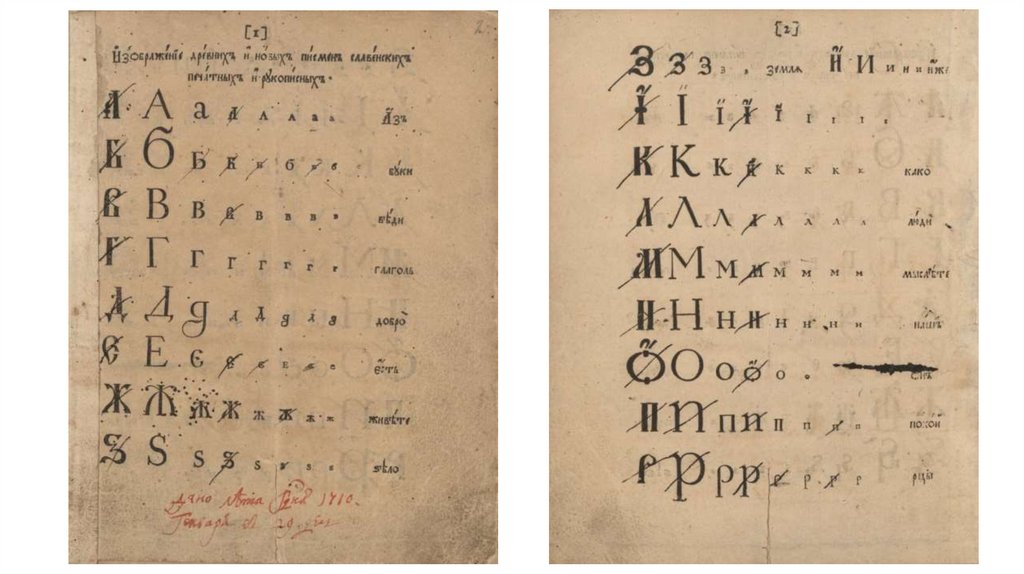 [1]
Изображение древнихъ и новыхъ писменъ славенскихъ
печатныхъ и рукописныхъ.
А А а а а а а а Азъ
Б Б Б Б Б б Б в буки
В В В В В В В В вѣди
Г Г Г Г Г Г Г Г глаголь
Д Д д д д д д д добро
Е Е Є є є є є є есть
Ж Ж Ж Ж Ж Ж Ж Ж живѣте
Ѕ S S Ѕ S S S S ѕѣло
дано лѣта 1710.
Генваря 29
[2]
З З З з з земля И И и и и иже
Ї Ї ї ї ї ї ї ї ї
К К К К К К К К како
Л Л Л Л Л Л Л Л люди
М М М М М М М М мыслѣте
Н Н Н Н Н Н Н Н нашъ
О О О О О о онъ
П П П П П П П П покой
Р Р Р Р Р Р Р Р рцы